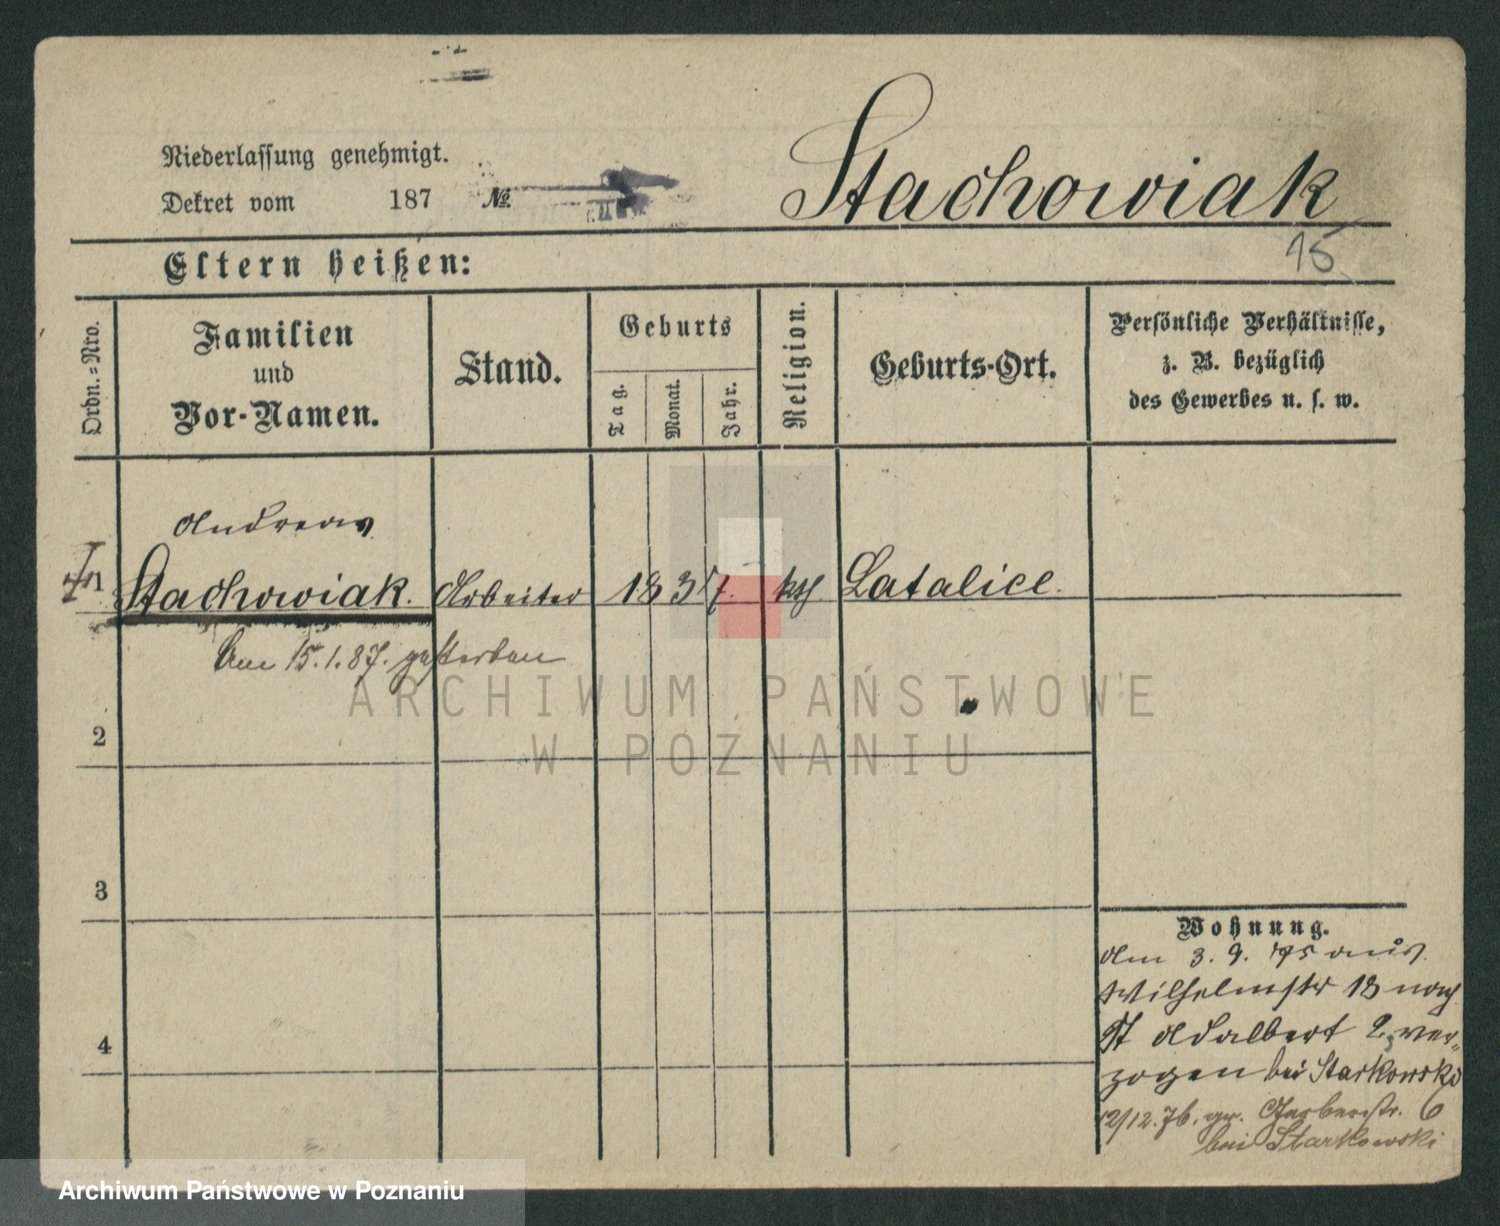 Niederlassung genehmigt.
Dekret vom 187 №
Stachowiak
15
Eltern heißen:
Ordn.-Nro.
Familien
und
Vor-Namen.
Stand.
Geburts
Tag.
Monat.
Jahr.
Religion.
Geburts-Ort.
Persönliche Verhältnisse,
z. B. bezüglich
des Gewerbes u. s. w.
Andreas
1 Stachowiak. Arbeiter 1837. kth Latalice.
Am 15.1.87. gestorben
ARCHIWUM PAŃSTWOWE
W POZNANIU
2
3
4
Wohnung.
Am 3. 9. 75 aus
Wilhelmstr 18 nach
St Adalbert 2 ver-
zogen bei Starkowski
12/12.76. gr. Gerberstr. 6
bei Starkowski
Archiwum Państwowe w Poznaniu